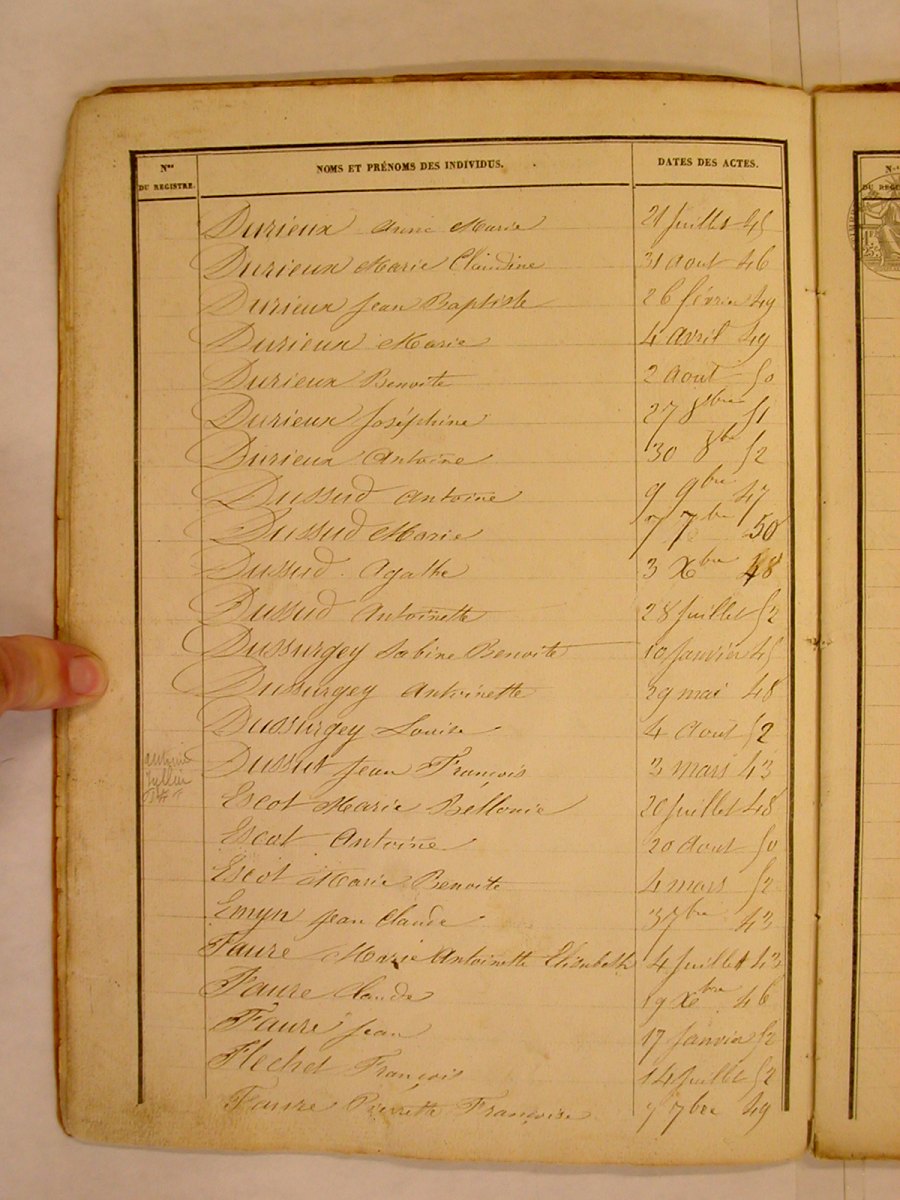 Nos DU REGISTRE. NOMS ET PRÉNOMS DES INDIVIDUS. DATES DES ACTES.
Durieux Anne Marie 21 Juillet 45
Durieux Marie Claudine 31 aout 46
Durieux Jean Baptiste 26 février 49
Durieux Marie 4 avril 49
Durieux Benoite 2 aout 50
Durieux Joséphine 27 8bre 51
Durieux Antoine 30 8bre 52
Dussud Antoine 9 9bre 47
Dussud Marie 7 7bre 50
Dussud Agathe 3 Xbre 48
Dussud Antoinette 28 Juillet 52
Dussurgey Sabine Benoite 10 Janvier 45
Dussurgey Antoinette 29 mai 48
Dussurgey Louise 4 aout 52
Dussut Jean François 3 mars 43
Escot Marie Bellonie 20 Juillet 48
Escot Antoine 20 aout 50
Escot Marie Benoite 4 mars 52
Emyn Jean Claude 3 7bre 43
Faure Marie Antoinette Elisabeth 4 Juillet 43
Faure Claude 19 Xbre 46
Faure Jean 17 Janvier 52
Flechet François 14 Juillet 52
Faure Pierrette Françoise 7 7bre 49